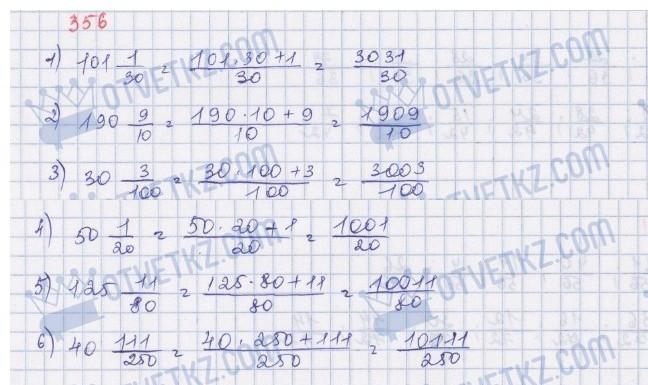 356
1) 101 1/30 = (101·30+1)/30 = 3031/30
2) 190 9/10 = (190·10+9)/10 = 1909/10
3) 30 3/100 = (30·100+3)/100 = 3003/100
4) 50 1/20 = (50·20+1)/20 = 1001/20
5) 125 11/80 = (125·80+11)/80 = 10011/80
6) 40 111/250 = (40·250+111)/250 = 10111/250
OTVETKZ.COM
OTVETKZ.COM
OTVETKZ.COM
OTVETKZ.COM